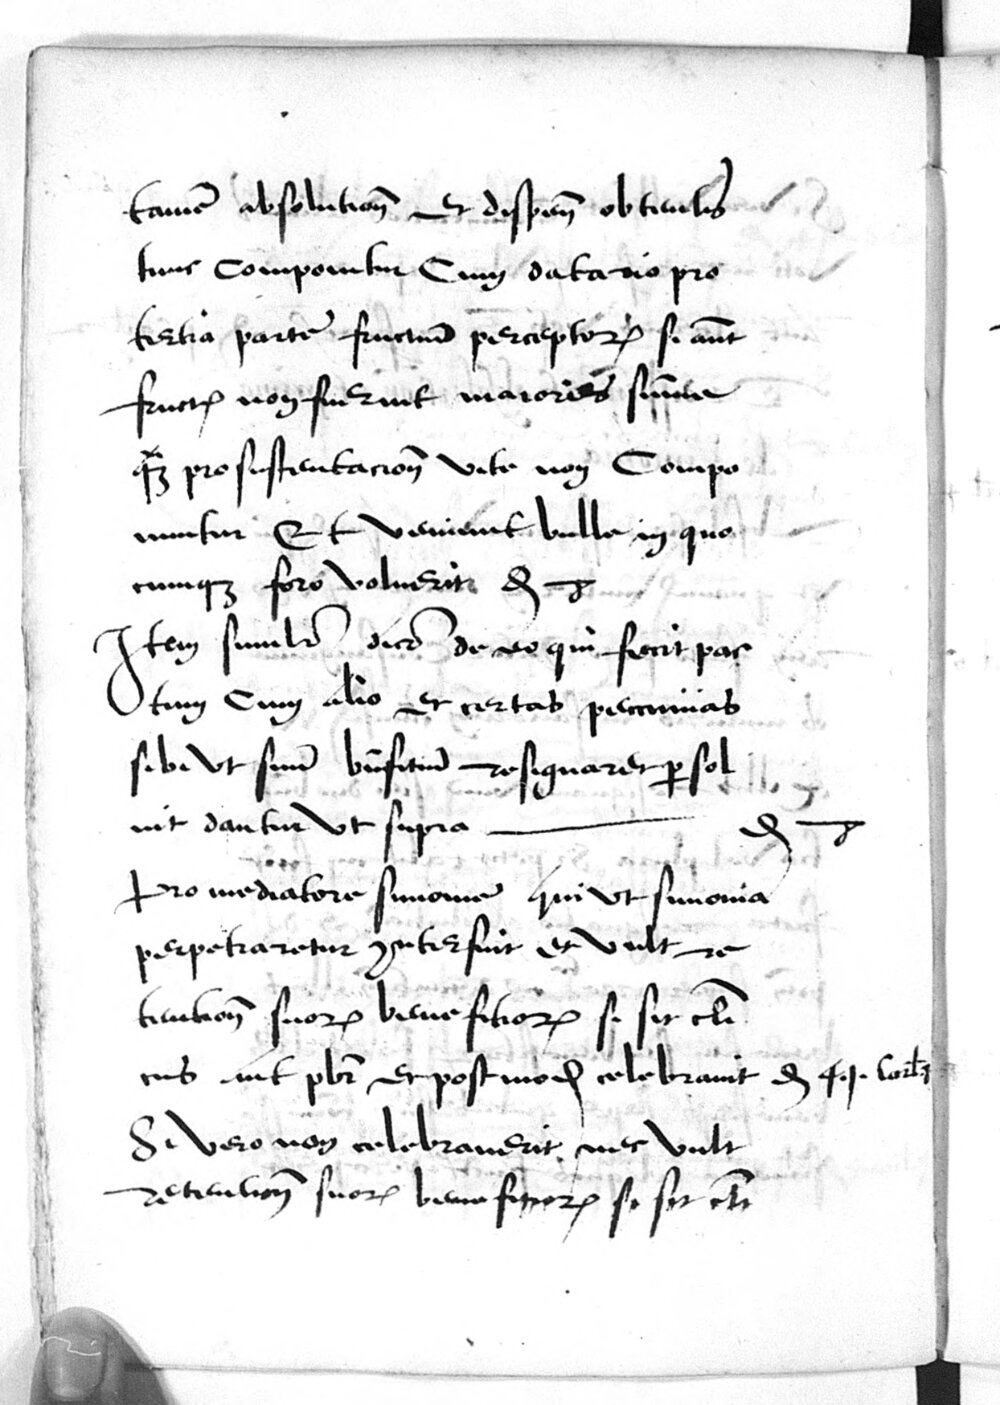 tamē absolutionē et dispēn obtinueris
tunc componitur Cum datario pro
tertia parte fructuū perceptorꝝ si aūt
fruct9 non fuerint maiores sūma
qꝫ pro sustentacionē vite non Compo
nuntur Et veniunt bulle in quo
cumqꝫ foro voluerit
Item similr̄ dicr̄ de eo qui fecit pac
tum Cum alio et certas peccunias
sibi vt suū bn̄fitiū resignaret ꝑsol
uit dantur vt supra
Pro mediatore simonie qui vt simonia
perpetraretur Interfuit et vult re
tentionē suorꝝ benefitiorꝝ si sit cl̄i
cus aut pb̄r et postmođ celebrauit
Si vero non celebrauerit nec vult
retentionē suorꝝ benefitiorꝝ si sit cl̄i